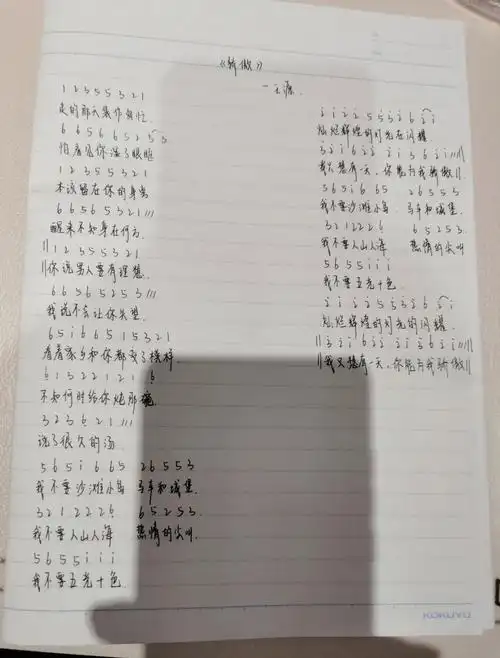 《骄傲》
-王源.
1 2 3 5 5 3 2 1
走的那天装作匆忙.
6 6 5 6 6 5 2 5 3
怕看见你湿了眼眶
1 2 3 5 5 3 2 1
本该留在你的身旁
6 6 5 6 5 3 2 1 ///
醒来不知身在何方.
|| 1 2 3 5 5 3 2 1
||你说男人要有理想.
6 6 5 6 5 2 5 3 ///
我说不会让你失望.
6 5 i 6 6 5 1 5 3 2 1
看着家乡和你都变了模样
6 1 3 2 2 1 2 1 6
不知何时给你炖那碗
3 2 3 6 2 1 ///
说了很久的汤
5 6 5 i 6 6 5 2 6 5 5 3
我不要沙滩小岛 马车和城堡.
3 2 1 2 2 2 6 6 5 2 5 3.
我不要人山人海 热情的尖叫.
5 6 5 5 i i i
我不要五光十色
i i i 2 2 5 5 3 i 6 2 i
灿烂辉煌的月光在闪耀
3 2 i 6 2 2 2 i 3 6 2 i //||
我只想有一天.你能为我骄傲||
5 6 5 i 6 6 5 2 6 5 5 3
我不要沙滩小岛 马车和城堡.
3 2 1 2 2 2 6 6 5 2 5 3.
我不要人山人海 热情的尖叫
5 6 5 5 i i i
我不要五光十色
i i i 2 2 5 5 3 2 6 2 i
灿烂辉煌的月光的闪耀.
|| 3 2 i 6 2 2 2 i 3 6 2 i //||
||我只想有一天.你能为我骄傲||
KOKUYO